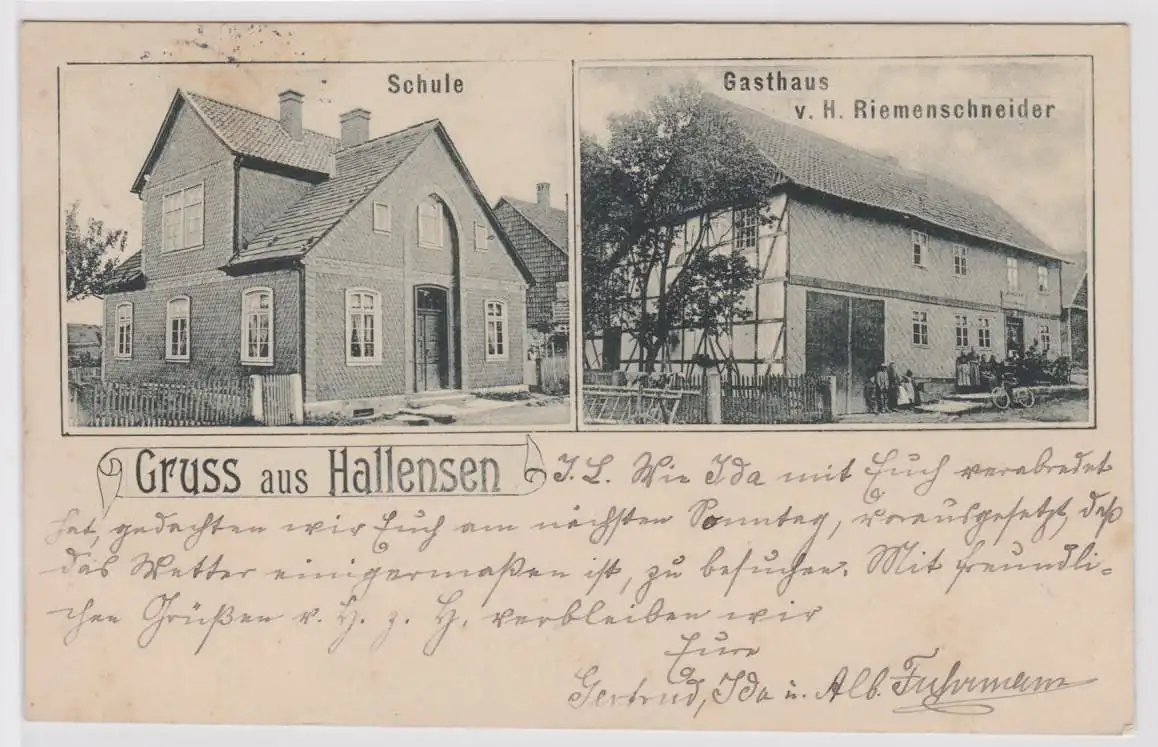 Schule
Gasthaus
v. H. Riemenschneider
Gruss aus Hallensen
I. L. Wie Ida mit Euch verabredet
hat, gedachten wir Euch am nächsten Sonntag, vorausgesetzt, daß
das Wetter einigermaßen ist, zu besuchen. Mit freundli-
chen Grüßen v. H. z. H. verbleiben wir
Eure
Gertrud, Ida u. Alb. Fuhrmann